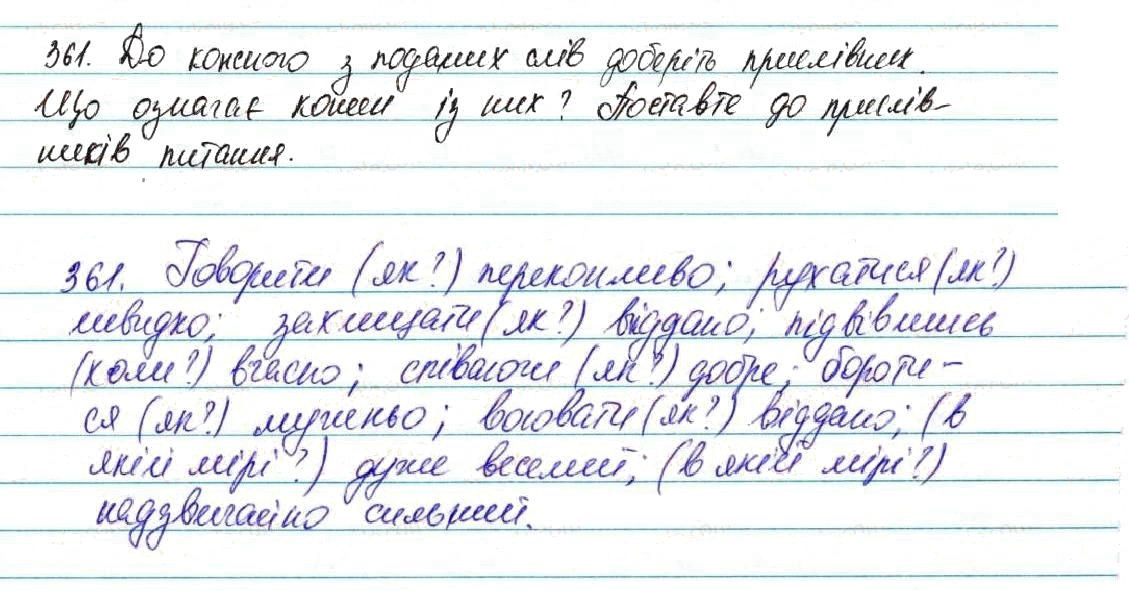 361. До кожного з поданих слів доберіть прислівник.
Що означає кожен із них? Поставте до прислів-
ників питання.
361. Говорити (як?) переконливо; рухатися (як?)
швидко; захищати (як?) віддано; підвівшись
(коли?) вчасно; співаючи (як?) добре; бороти-
ся (як?) мужньо; воювати (як?) віддано; (в
якій мірі?) дуже веселий; (в якій мірі?)
надзвичайно сильний.